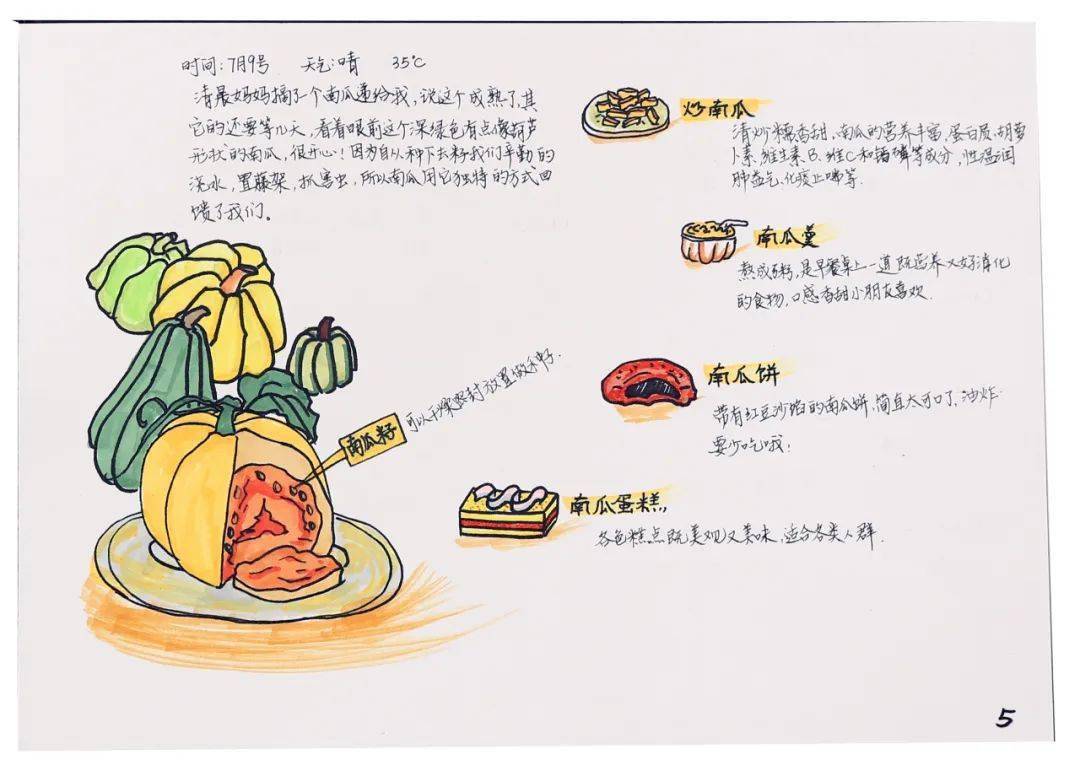 时间:7月9号 天气:晴 35℃
清晨妈妈摘了一个南瓜递给我,说这个成熟了,其
它的还要等几天,看着眼前这个深绿色有点像葫芦
形状的南瓜,很开心!因为自从种下去籽我们辛勤的
浇水,置藤架,抓害虫,所以南瓜用它独特的方式回
馈了我们。
炒南瓜
清炒糯香甜,南瓜的营养丰富,蛋白质、胡萝
卜素、维生素B、维C和磷等成分,性温润
肺益气、化痰止等.
南瓜羹
熬成粥,是早餐桌上一道既营养又好消化
的食物,口感香甜小朋友喜欢.
可以干燥密封放置做种籽.
南瓜籽
南瓜饼
带有红豆沙馅的南瓜饼,简直太可口了,油炸
要少吃哦!
南瓜蛋糕,
各色糕点既美观又美味,适合各类人群.
5